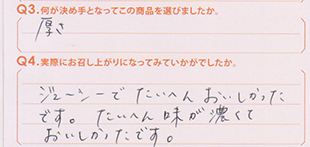 Q3.何が決め手となってこの商品を選びましたか。
厚さ
Q4.実際にお召し上がりになってみていかがでしたか。
ジューシーでたいへんおいしかった
です。たいへん味が濃くて
おいしかったです。